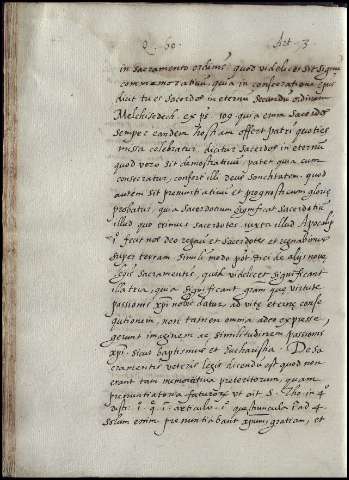 Q. 60. Art. 3
in sacramento ordinis: quod videlicet sit signũ
commemoratiuũ, quia in consecratione epus
dicit tu es sacerdos in eternũ secundũ ordinem
Melchisedech. ex ps. 109. quia enim sacerdos
semper eandem hostiam offert patri quoties
missa celebratur. dicitur sacerdos in eternũ
quod vero sit demostratiuũ, patet quia cum
consecratur, confert illi deus sanctitatem. quod
autem sit prenuntiatiuũ et prognosticum glorie
probatur, quia sacerdotium significat sacerdotiũ
illud quo erimus sacerdotes, iuxta illud Apocalip
1°. fecit nos deo regnũ et sacerdotes et regnabimus
super terram. simili modo põt dici de alijs noue
legis sacramentis, que videlicet significant
illa tria, quia significant gram que virtute
passionis xpi nobis datur, ad vite eterne conse
qutionem, non tamen omnia adeo expresse,
gerunt imaginem, ac similitudinem passionis
xpi. sicut baptismus et Eucharistia. De sa
cramentis veteris legis dicendũ est quod non
erant tam memoratiua preteritorum, quam
prenuntiatoria futurorũ ut ait S. Tho. in 4°
dist. 1°. q. 1°. articulo. 1°. questiuncula. 1ª ad 4.
solum enim prenuntiabant xpum, gratiam, et